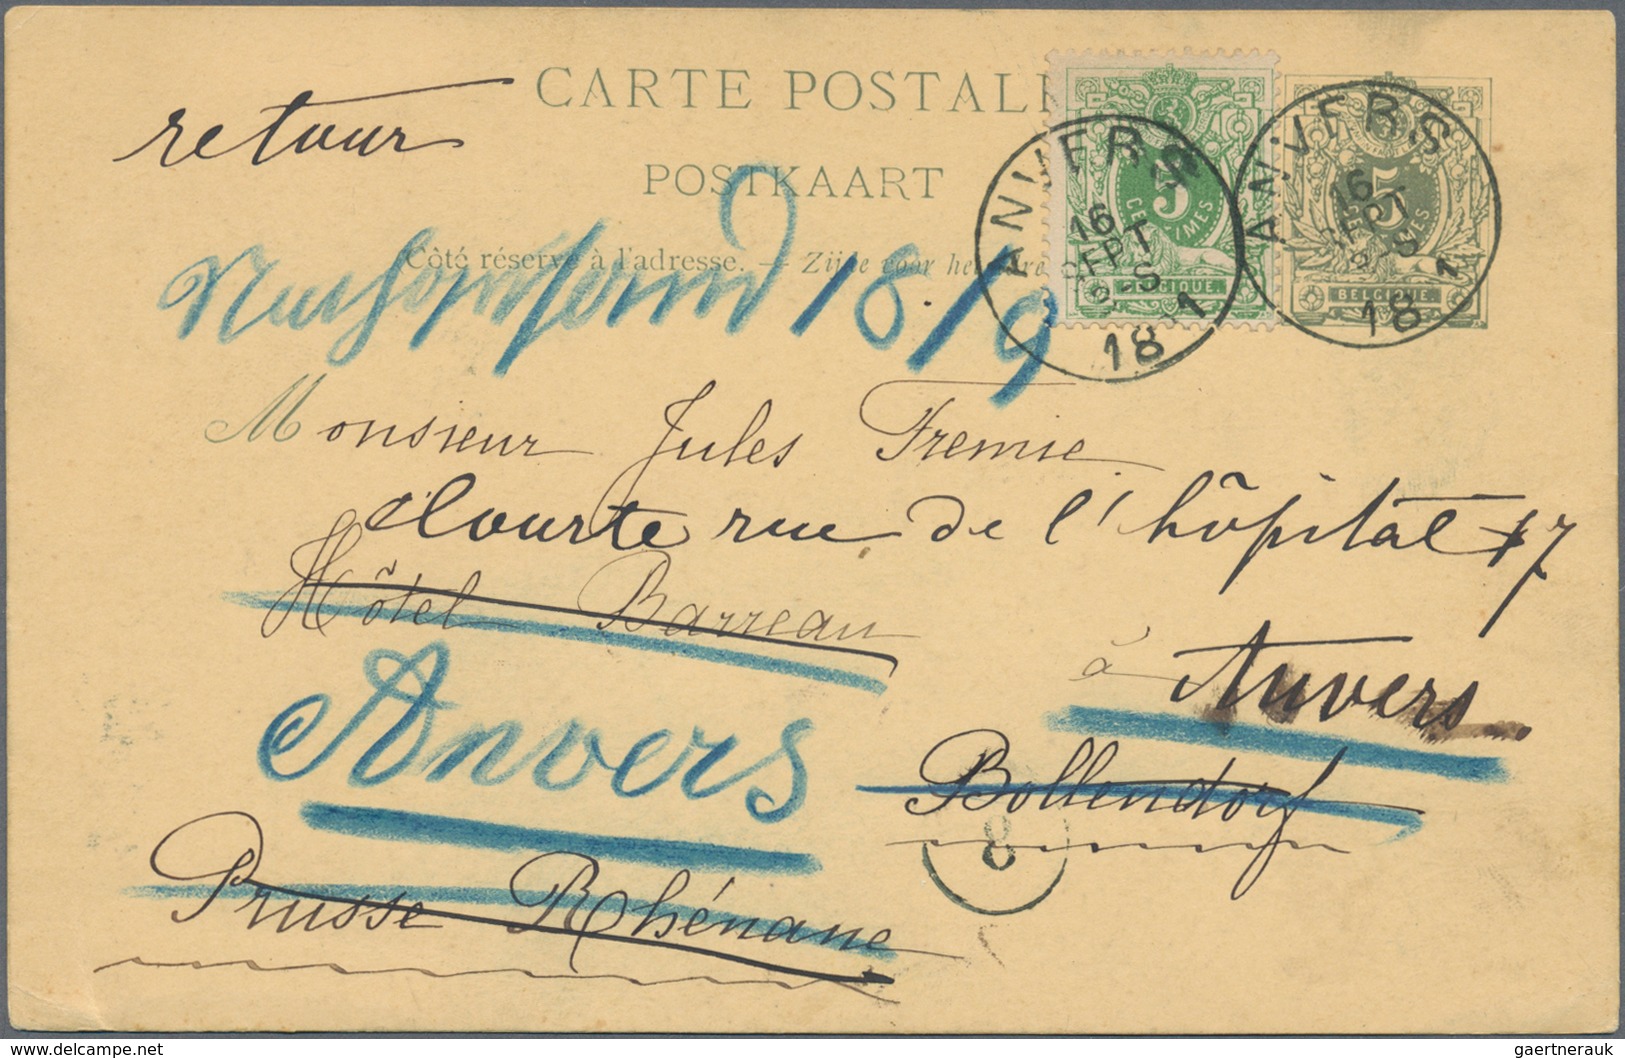 CARTE POSTALE
retour
POSTKAART
Côté réservé à l'adresse. — Zijde voor het
18/9
ANVERS
16
SEPT
8-S
18 1
5
CENTIMES
BELGIQUE
ANVERS
16
SEPT
8-S
18 1
5
CENTIMES
BELGIQUE
Monsieur Jules Fremie
Courte rue de l'hôpital 17
Hôtel Barreau
à Anvers
Anvers
Bollendorf
8
Prusse Rhénane
www.delcampe.net
gaertnerauk